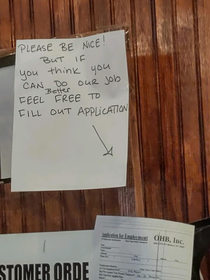 PLEASE BE NICE!
BUT IF
YOU THINK YOU
CAN DO OUR JOB
Better
FEEL FREE TO
FILL OUT APPLICATION
Application for Employment
OHB, Inc.
STOMER ORDE